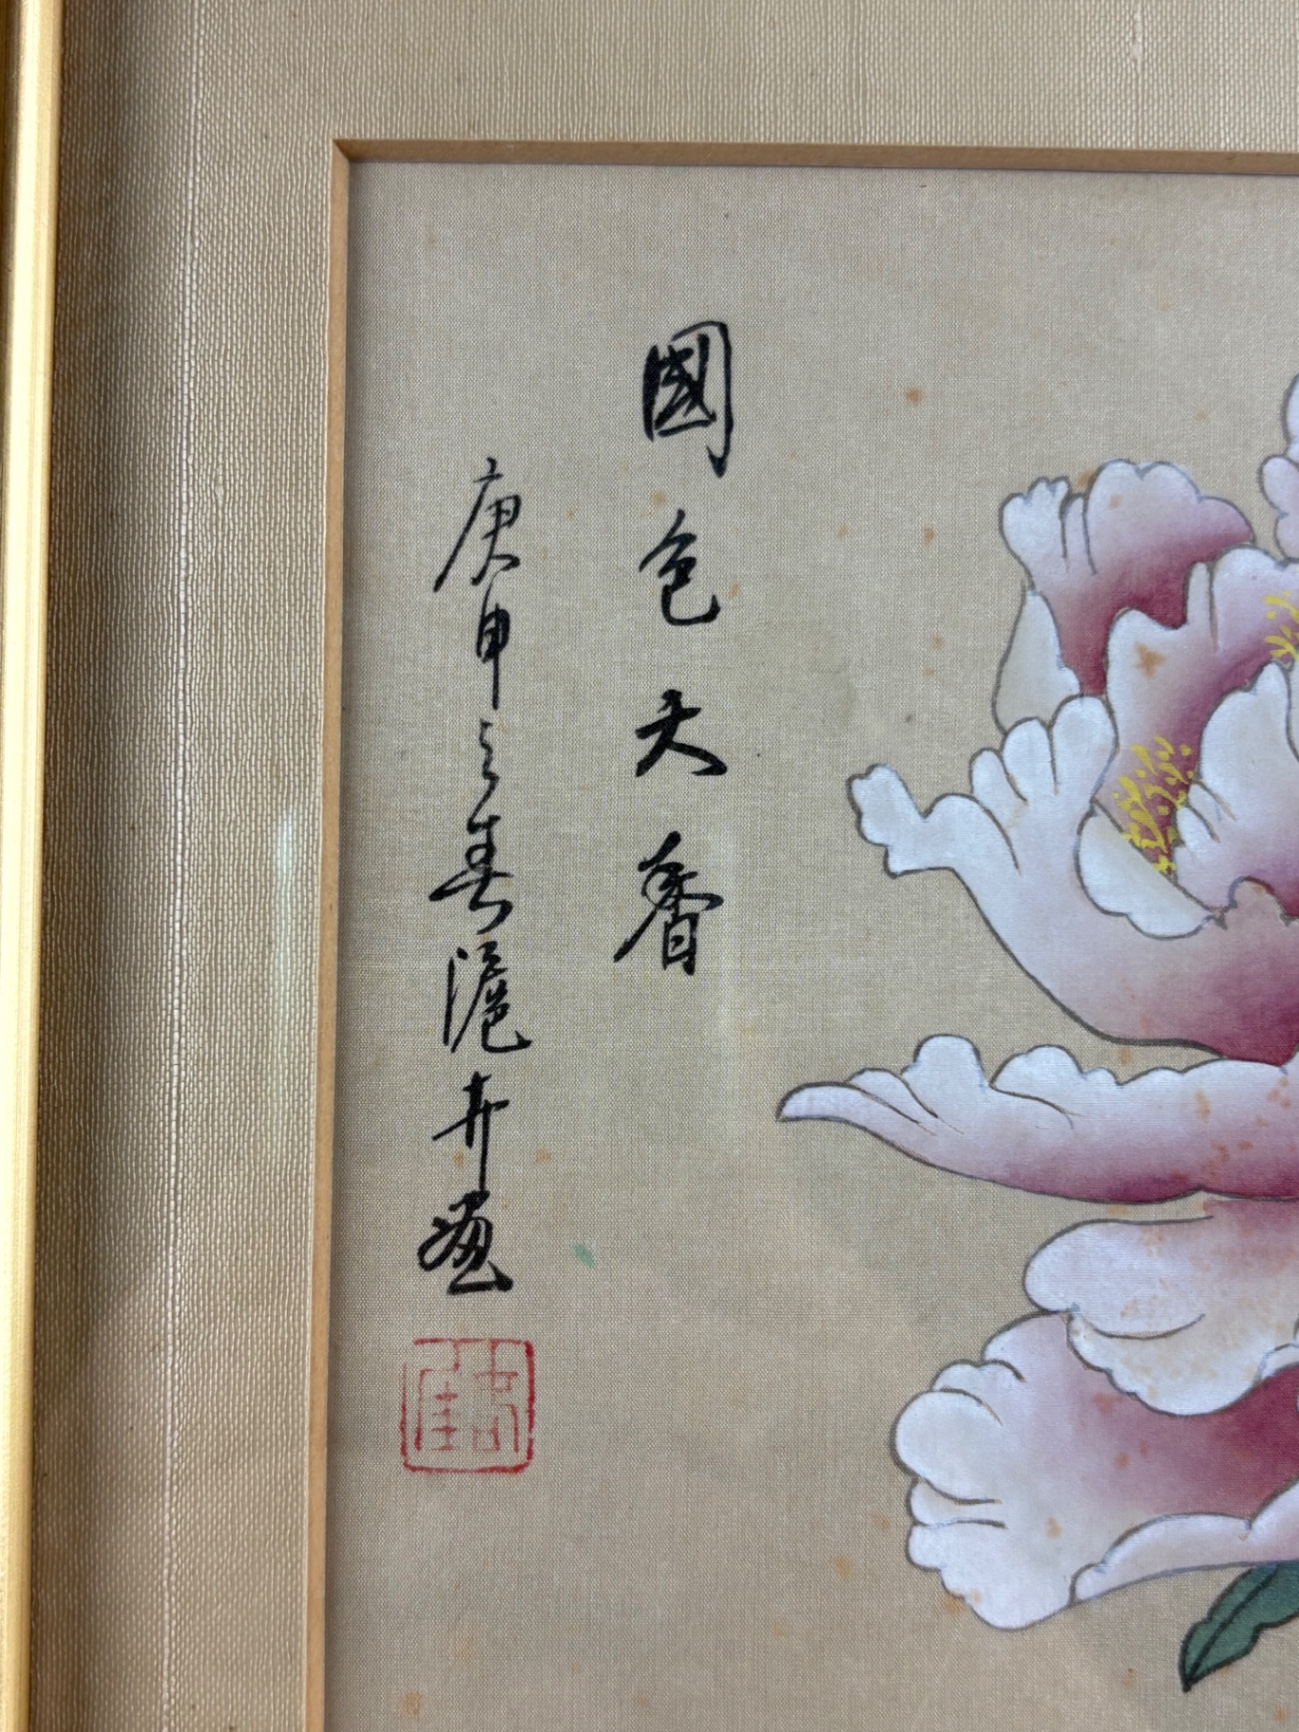 國色天香
庚申之春滬卉畫